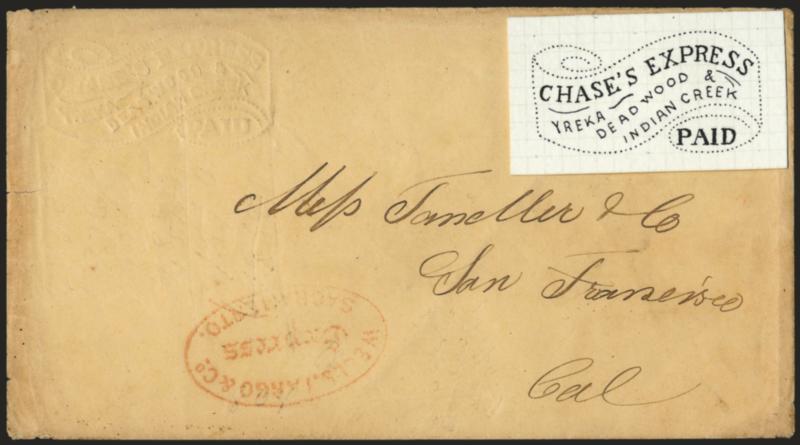 CHASE'S EXPRESS
YREKA DEADWOOD &
INDIAN CREEK
PAID
CHASE'S EXPRESS
YREKA DEADWOOD &
INDIAN CREEK
PAID
Mess &
Co
San Francisco
Cal
WELLS, FARGO & Co.
EXPRESS
SACRAMENTO.